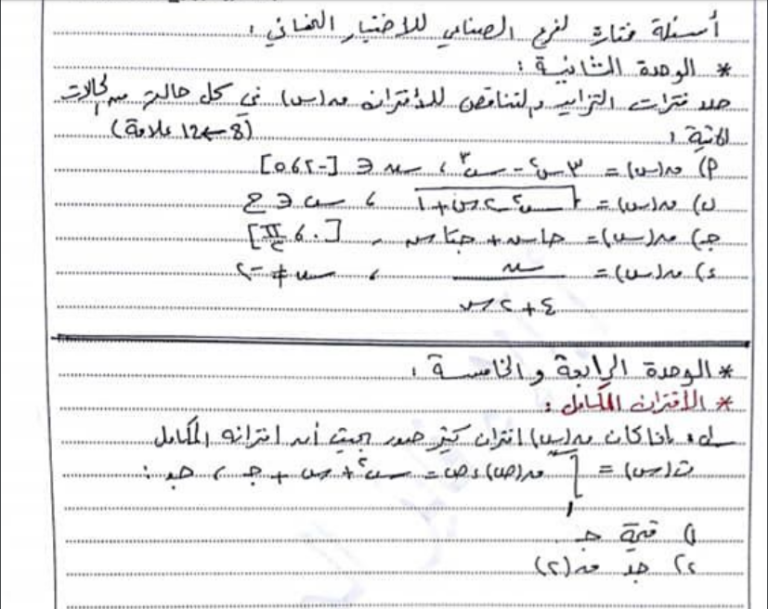 أسئلة مختارة لفرع الصناعي للاختبار النهائي :
* الوحدة الثانية :
حدد فترات التزايد والتناقص للاقتران ق(س) في كل حالة من الحالات
الآتية : (8 ← 12 علامة)
أ) ق(س) = ٣س٢ - س٣ ، س ∈ [-٥،٢]
ب) ق(س) = √س٢ - ٢س + ١ ، س ∈ ح
جـ) ق(س) = جاس + جتاس ، [٠، π/٢]
د) ق(س) = س / ٢س + ٤ ، س ≠ -٢
* الوحدة الرابعة والخامسة :
* الاقتران المكامل :
س١. إذا كان ق(س) اقتران كثير حدود بحيث أن اقترانه المكامل
ت(س) = ∫ ق(ص) ءص = س٢ + س + جـ ، جد :
١) قيمة جـ
٢) جد ق(٢)